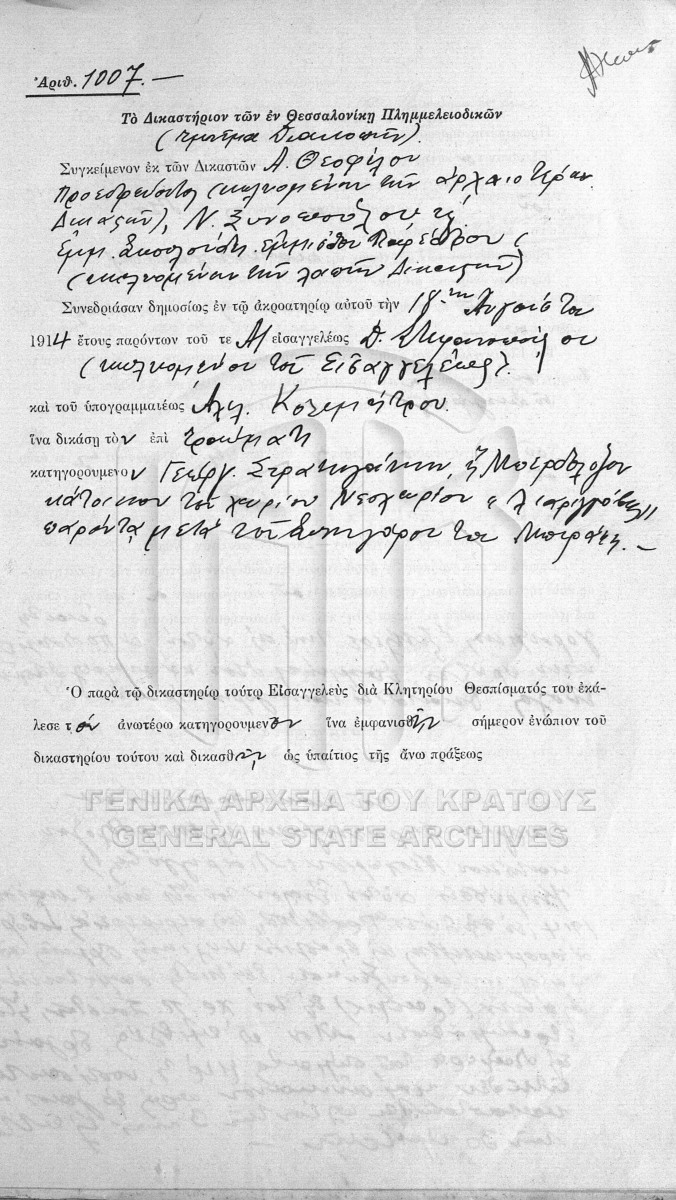 Ἀριθ. 1007.—
Τὸ Δικαστήριον τῶν ἐν Θεσσαλονίκῃ Πλημμελειοδικῶν
(τμῆμα Διακοπῶν).
Συγκείμενον ἐκ τῶν Δικαστῶν Α. Θεοφίλου
Προεδρεύοντος (κωλυομένων τῶν ἀρχαιοτέρων
Δικαστῶν), Ν. Ξυνοπούλου καὶ
Ἐμμ. ἐμμίσθου Παρέδρου (
(κωλυομένων τῶν λοιπῶν Δικαστῶν)
Συνεδριάσαν δημοσίως ἐν τῷ ἀκροατηρίῳ αὐτοῦ τὴν 18ην Αὐγούστου
1914 ἔτους παρόντων τοῦ τε Α/ εἰσαγγελέως Δ. Στεφανοπούλου
(κωλυομένου τοῦ Εἰσαγγελέως).
καὶ τοῦ ὑπογραμμαιέως Ἀλ. Κοσμήτρου.
ἵνα δικάσῃ τὸν ἐπὶ τραύματι
κατηγορουμενον Γεώργ.
κάτοικον τοῦ χωρίου Νεοχωρίου
παρόντα μετὰ τοῦ Συνηγόρου του
Ὁ παρὰ τῷ δικαστηρίῳ τούτῳ Εἰσαγγελεὺς διὰ Κλητηρίου Θεσπίσματός του ἐκά-
λεσε τὸν ἀνωτέρω κατηγορουμενον ἵνα ἐμφανισθῇ σήμερον ἐνώπιον τοῦ
δικαστηρίου τούτου καὶ δικασθῇ ὡς ὑπαίτιος τῆς ἄνω πράξεως
ΓΕΝΙΚΑ ΑΡΧΕΙΑ ΤΟΥ ΚΡΑΤΟΥΣ
GENERAL STATE ARCHIVES